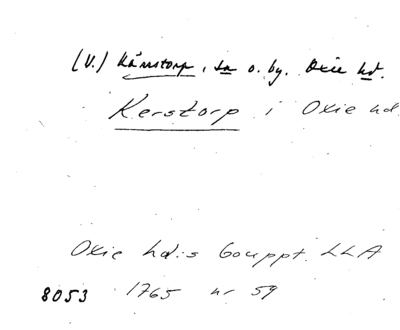 (V.) Kärrstorp, sn o. by. Oxie hd.
Kerstorp i Oxie hd
Oxie hd:s bouppt. LLA
8053 1765 nr 59